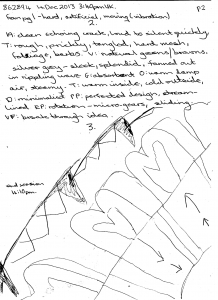 862894 14 Dec 2013 3:40pm UK. P2
fangs/ - hard, artificial, moving (vibration)
2.
A: clean echoing crack, tend to silent quickly,
T: rough, prickly, tangled, hard, mesh,
foldings, barbs V: natural greens/browns,
silver grey - sleek, splendid, fanned out
in rippling wave G: absent O: warm damp
air, steamy. T: warm inside, cold outside,
D: minimalist PP: perfected design, stream
lined EP: rotation - micro-gears, sliding
VF: break through idea.
3.
end session
4:10pm.